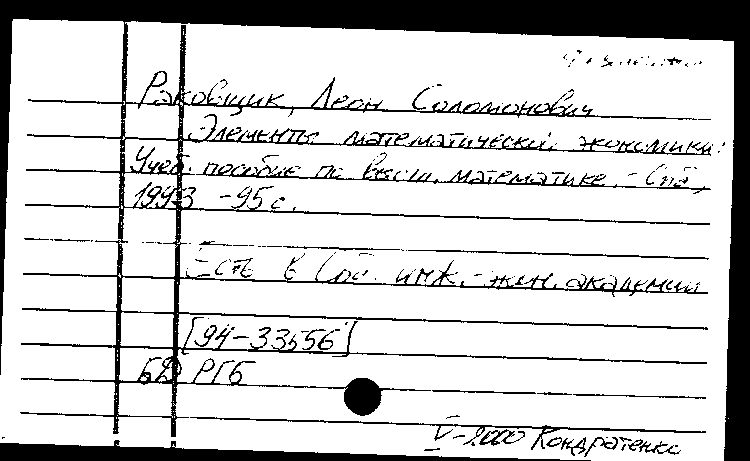 Раковщик, Леон Соломонович
Элементы математической экономики:
Учеб. пособие по высш. математике. - Спб,
1993 - 95 с.
Есть в Спб. инж.- академии
[94-33556]
РГБ
V-2000 Кондратенко